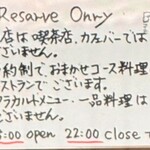 Resarve Onry
店は喫茶店、カフェバーでは
ざいません。
約制で、おまかせコース料理
ストランでございます。
ラカルトメニュー・一品料理は
ございません。
:00 open 22:00 close